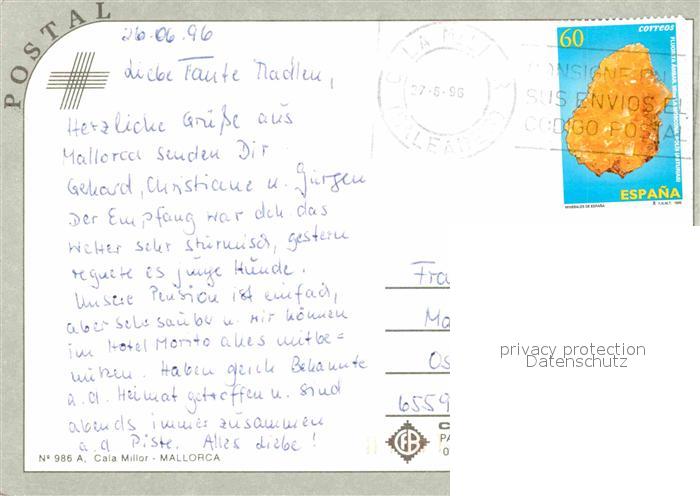 POSTAL
26.06.96
Liebe Tante Madlen,
Herzliche Grüße aus
Mallorca senden Dir
Gehard, Christiane u. Jürgen
Der Empfang war dch. das
Wetter sehr stürmisch, gestern
regnete es junge Hunde.
Unsere Pension ist einfach,
aber sehr sauber u. wir können
im Hotel Morito alles mitbe=
nützen. Haben gleich Bekannte
a.d. Heimat getroffen u. sind
abends immer zusammen
a.d Piste. Alles Liebe!
Nº 986 A, Cala Millor - MALLORCA
27-6-96
CONSIGNE EN
SUS ENVIOS EL
CODIGO POSTAL
60
correos
ESPAÑA
MINERALES DE ESPAÑA
Fra
Ma
Os
6559
privacy protection
Datenschutz